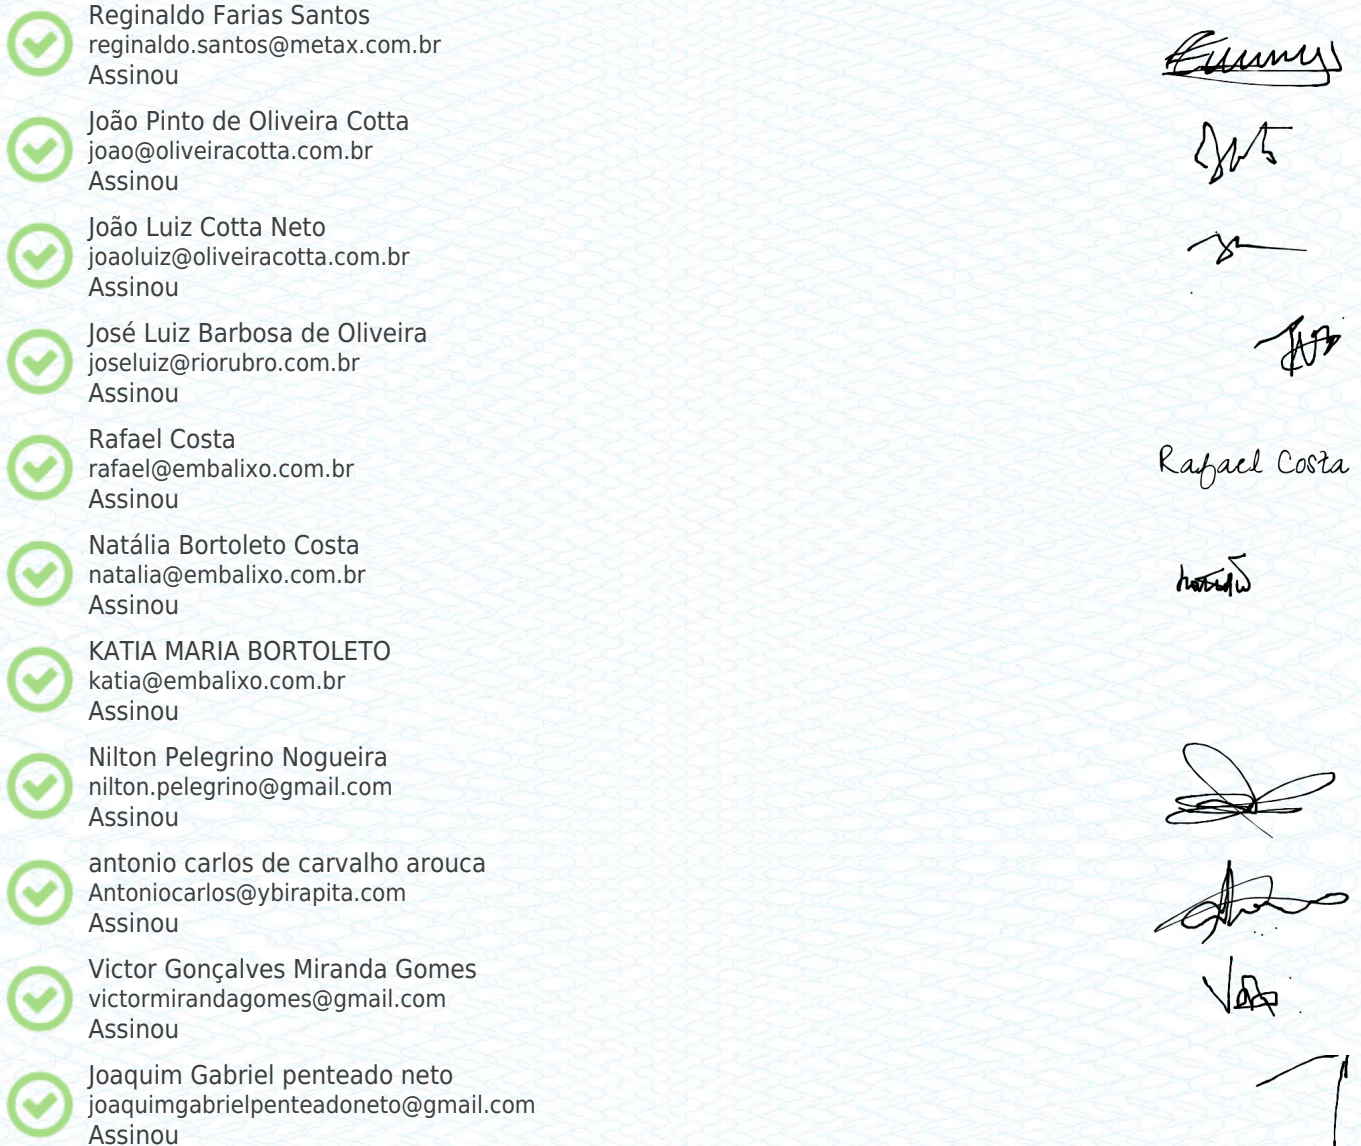 Reginaldo Farias Santos
reginaldo.santos@metax.com.br
Assinou
João Pinto de Oliveira Cotta
joao@oliveiracotta.com.br
Assinou
João Luiz Cotta Neto
joaoluiz@oliveiracotta.com.br
Assinou
José Luiz Barbosa de Oliveira
joseluiz@riorubro.com.br
Assinou
Rafael Costa
rafael@embalixo.com.br
Rafael Costa
Assinou
Natália Bortoleto Costa
natalia@embalixo.com.br
Assinou
KATIA MARIA BORTOLETO
katia@embalixo.com.br
Assinou
Nilton Pelegrino Nogueira
nilton.pelegrino@gmail.com
Assinou
antonio carlos de carvalho arouca
Antoniocarlos@ybirapita.com
Assinou
Victor Gonçalves Miranda Gomes
victormirandagomes@gmail.com
Assinou
Joaquim Gabriel penteado neto
joaquimgabrielpenteadoneto@gmail.com
Assinou